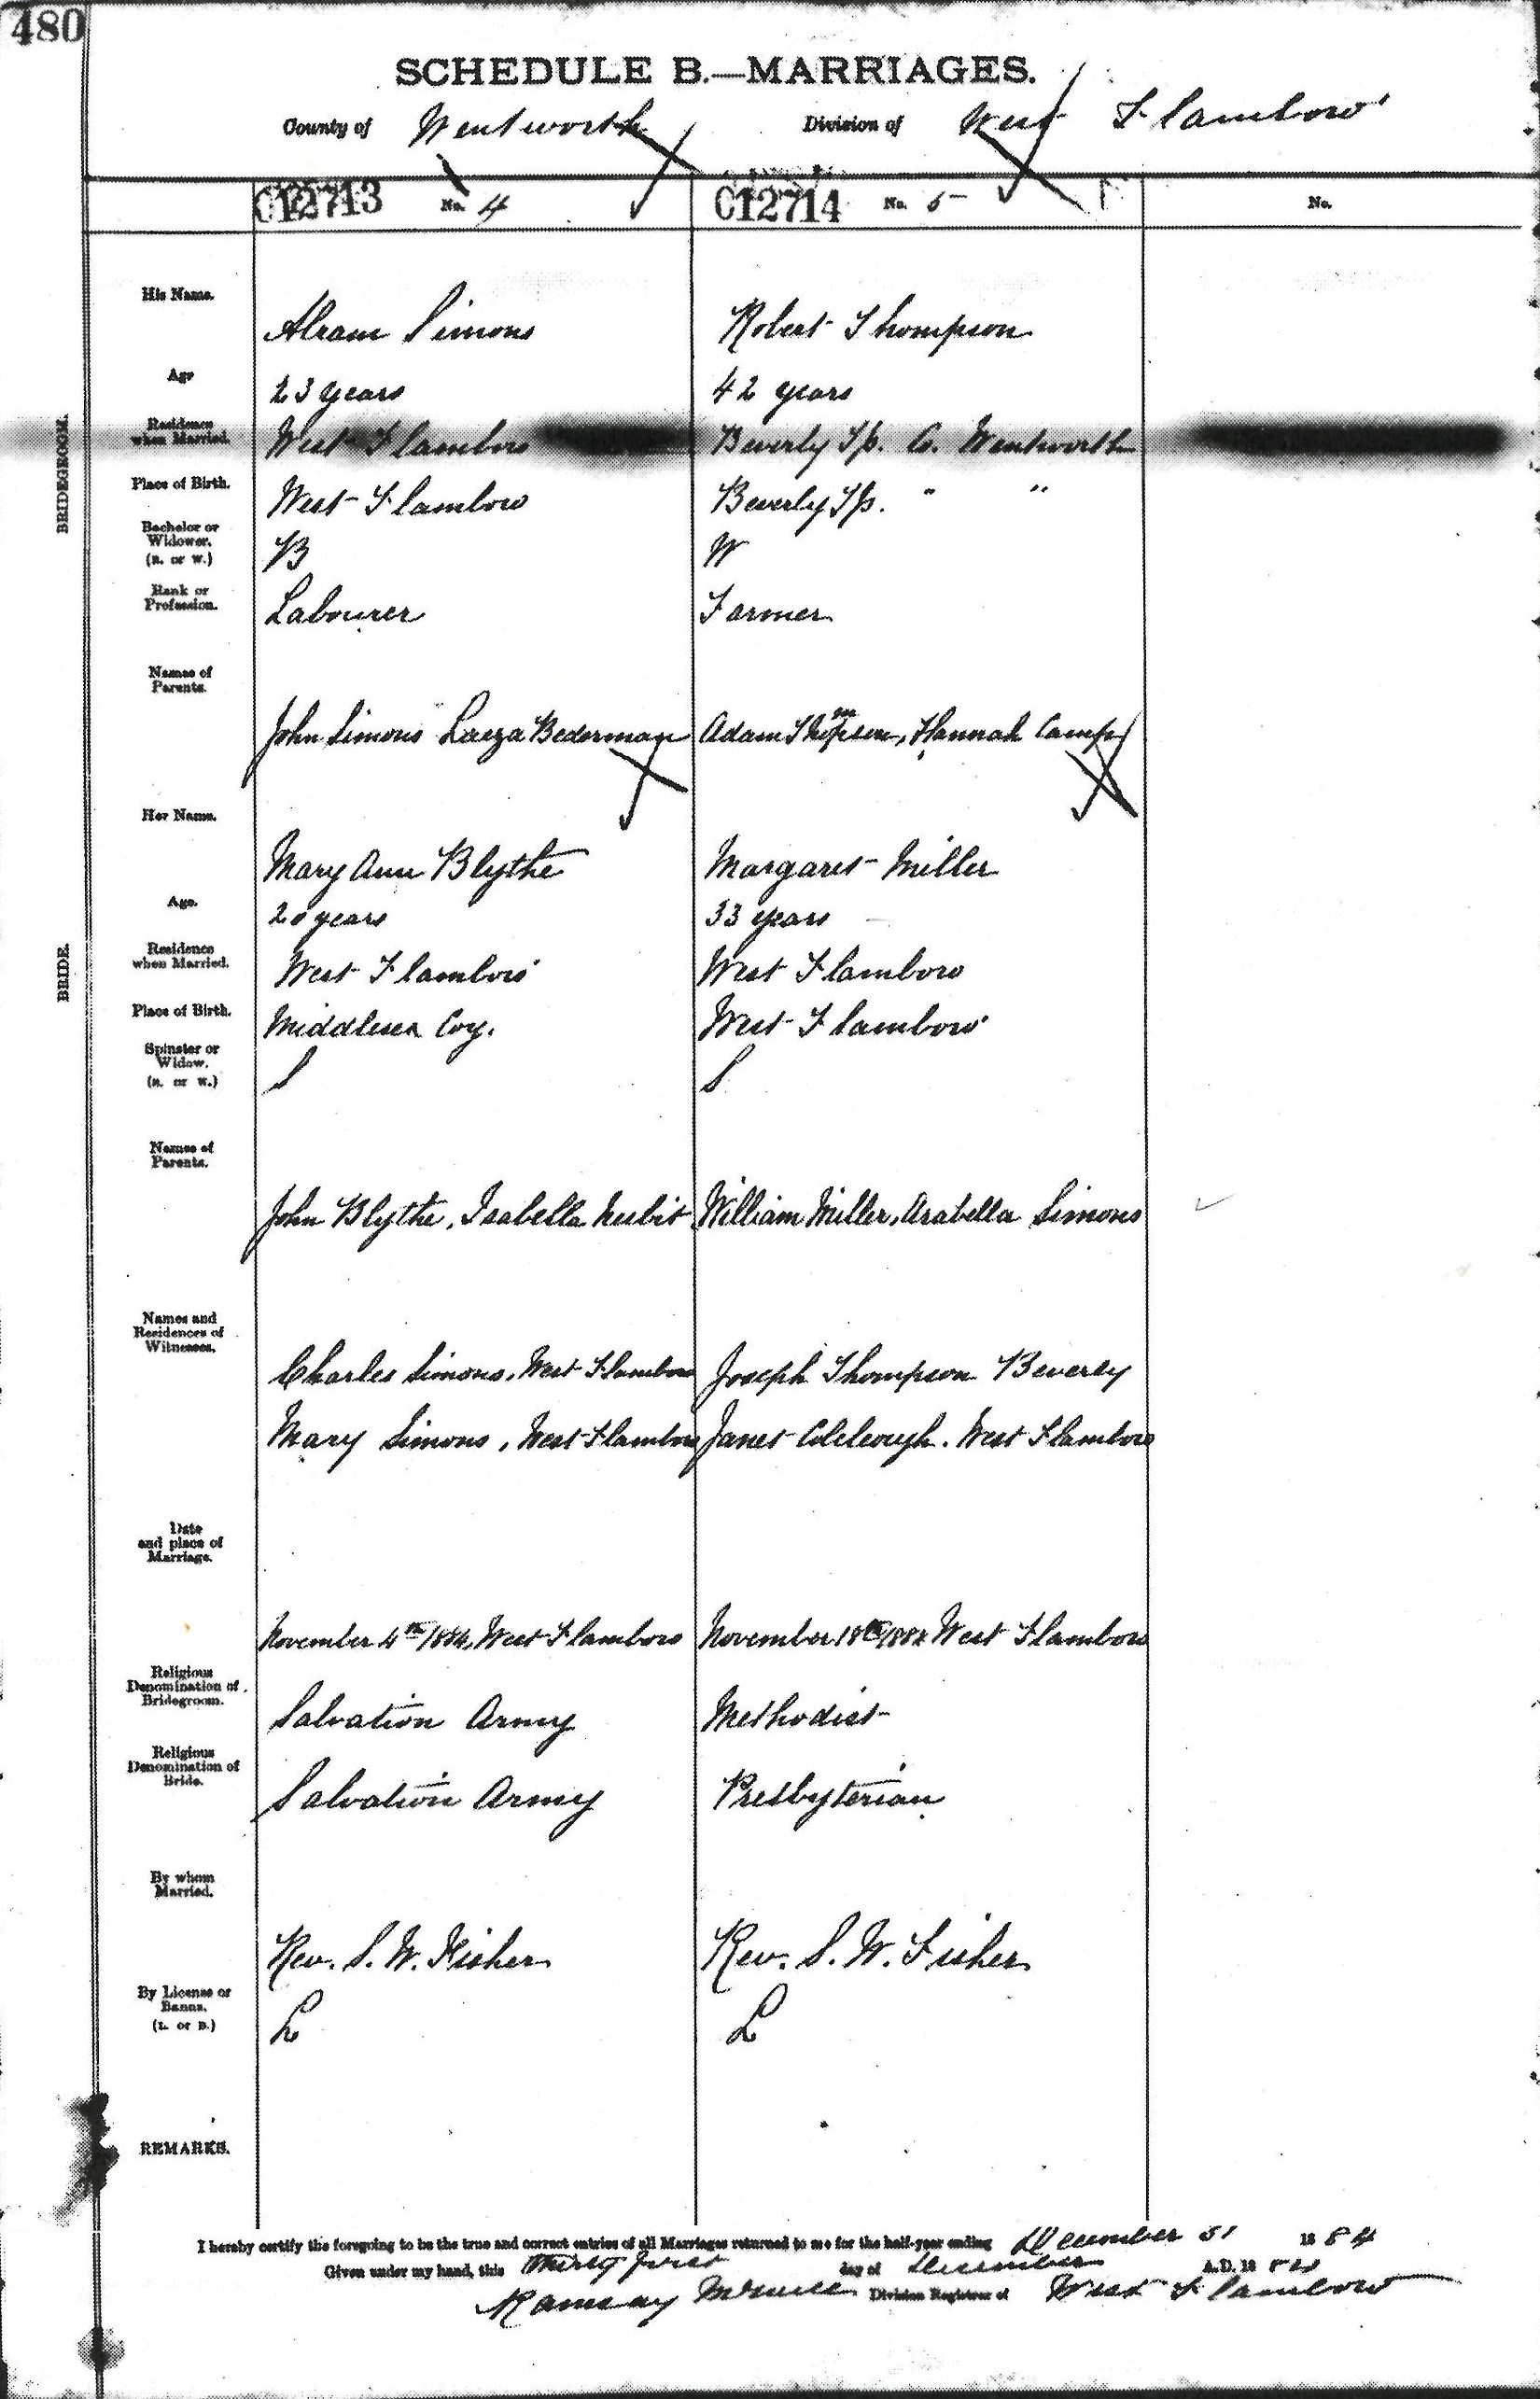 480
SCHEDULE B.—MARRIAGES.
County of Wentworth Division of West Flamboro'
C12713 No. 4 C12714 No. 5 No.
BRIDEGROOM.
His Name. Abram Simons Robert Thompson
Age 23 years 42 years
Residence when Married. West Flamboro Beverly Tp. Co. Wentworth
Place of Birth. West Flamboro Beverly Tp. " "
Bachelor or Widower. (B. or W.) B W
Rank or Profession. Labourer Farmer
Names of Parents. John Simons Bederman Adam Thompson, Hannah Camp
BRIDE.
Her Name. Mary Ann Blythe Margaret Miller
Age. 20 years 33 years
Residence when Married. West Flamboro' West Flamboro
Place of Birth. Middlesex Coy. West Flamboro'
Spinster or Widow. (S. or W.) S S
Names of Parents. John Blythe, Isabella Nesbit William Miller, Arabella Simons
Names and Residences of Witnesses.
Charles Simons, West Flamboro Joseph Thompson Beverley
Mary Simons, West Flamboro Janet West Flamboro
Date and place of Marriage.
November 4th/1884, West Flamboro November 18th/1884 West Flamboro
Religious Denomination of Bridegroom. Salvation Army Methodist
Religious Denomination of Bride. Salvation Army Presbyterian
By whom Married. Rev. S. W. Fisher Rev. S. W. Fisher
By License or Banns. (L. or B.) L L
REMARKS.
I hereby certify the foregoing to be the true and correct entries of all Marriages returned to me for the half-year ending December 31 1884
Given under my hand, this Thirty first day of December A.D. 1884
Ramsay Division Registrar of West Flamboro